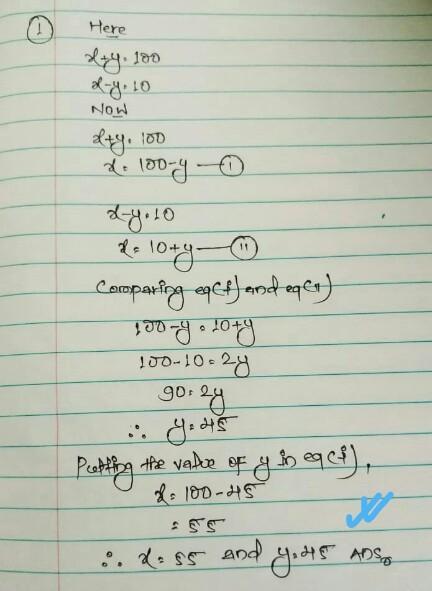 ① Here
x+y=100
x-y=10
Now
x+y=100
x=100-y—①
x-y=10
x=10+y—⑪
Comparing eq(i) and eq(ii)
100-y=10+y
100-10=2y
90=2y
∴ y=45
Putting the value of y in eq(i),
x=100-45
=55
∴ x=55 and y=45 Ans.